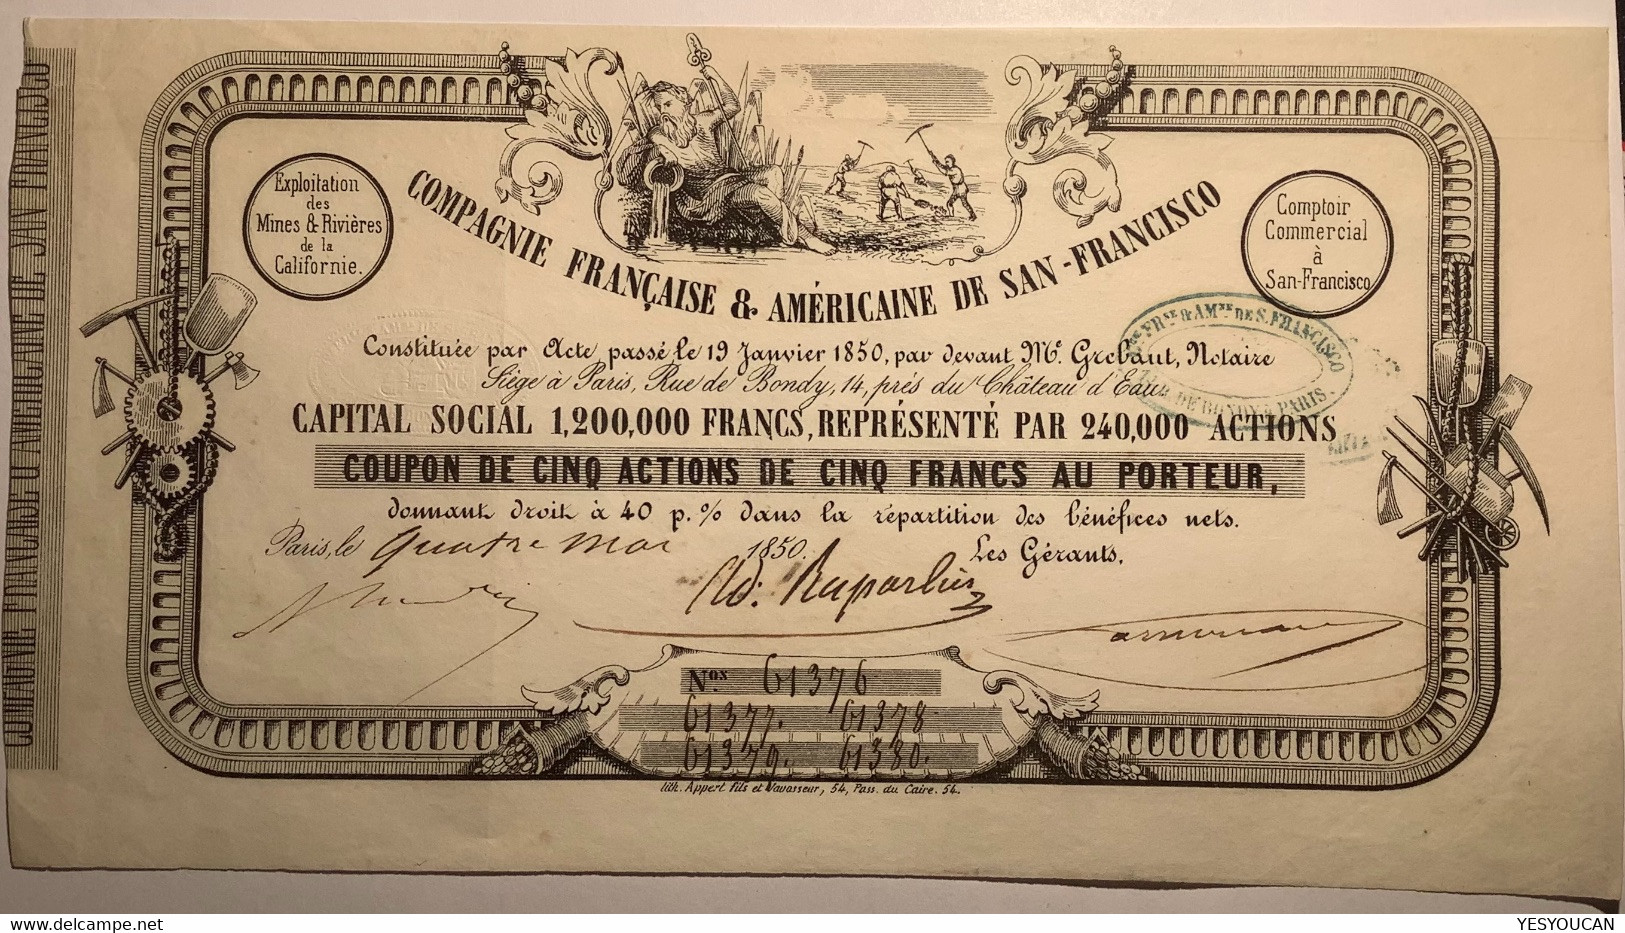 COMPAGNIE FRANÇAISE & AMÉRICAINE DE SAN-FRANCISCO
Exploitation
des
Mines & Rivières
de la
Californie.
COMPAGNIE FRANÇAISE & AMÉRICAINE DE SAN-FRANCISCO
Comptoir
Commercial
à
San-Francisco
Constituée par Acte passé le 19 Janvier 1850, par devant Me. Grebaut, Notaire
Siège à Paris, Rue de Bondy, 14, près du Château d'Eau
CAPITAL SOCIAL 1,200,000 FRANCS, REPRÉSENTÉ PAR 240,000 ACTIONS
COUPON DE CINQ ACTIONS DE CINQ FRANCS AU PORTEUR,
donnant droit à 40 p.% dans la répartition des bénéfices nets.
Paris, le quatre mai 1850. Les Gérants,
FRSE & AMNE DE S. FRANCISCO
DE BONDY PARIS.
Nos. 61376
61377. 61378
61379. 61380.
lith. Appert fils et Vavasseur, 54, Pass. du Caire. 54.
delcampe.net
YESYOUCAN